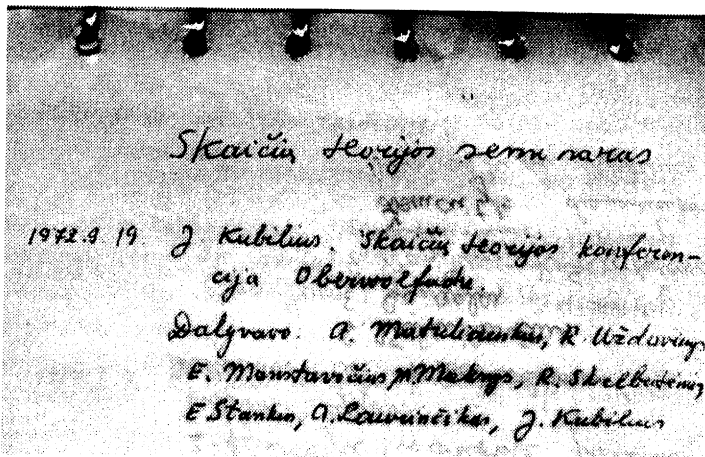 Skaičių teorijos seminaras
1972.9 19. J Kubilius. Skaičių teorijos konferen-
cija Oberwolfache.
Dalyvavo: A. Matuliauskas, R. Uždavinys
E. Manstavičius, Maknys, R. Skrabutėnas
E Stankus, A. Laurinčikas, J. Kubilius